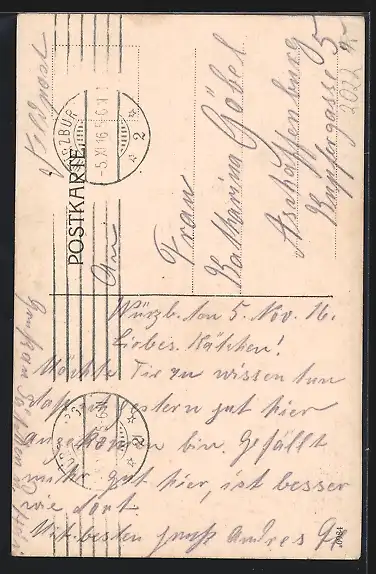 Feldpost
POSTKARTE
An
WÜRZBURG
-5.XI.16.
2
Frau
Katharina Göbel
Aschaffenburg
Kupfergasse 5
Würzb. den 5. Nov. 16.
Liebes Kätchen!
Möchte Dir zu wissen tun
daß ich gestern gut hier
angekommen bin. Gefällt
mir gut hier, ist besser
wie dort.
Mit besten Gruß Andres